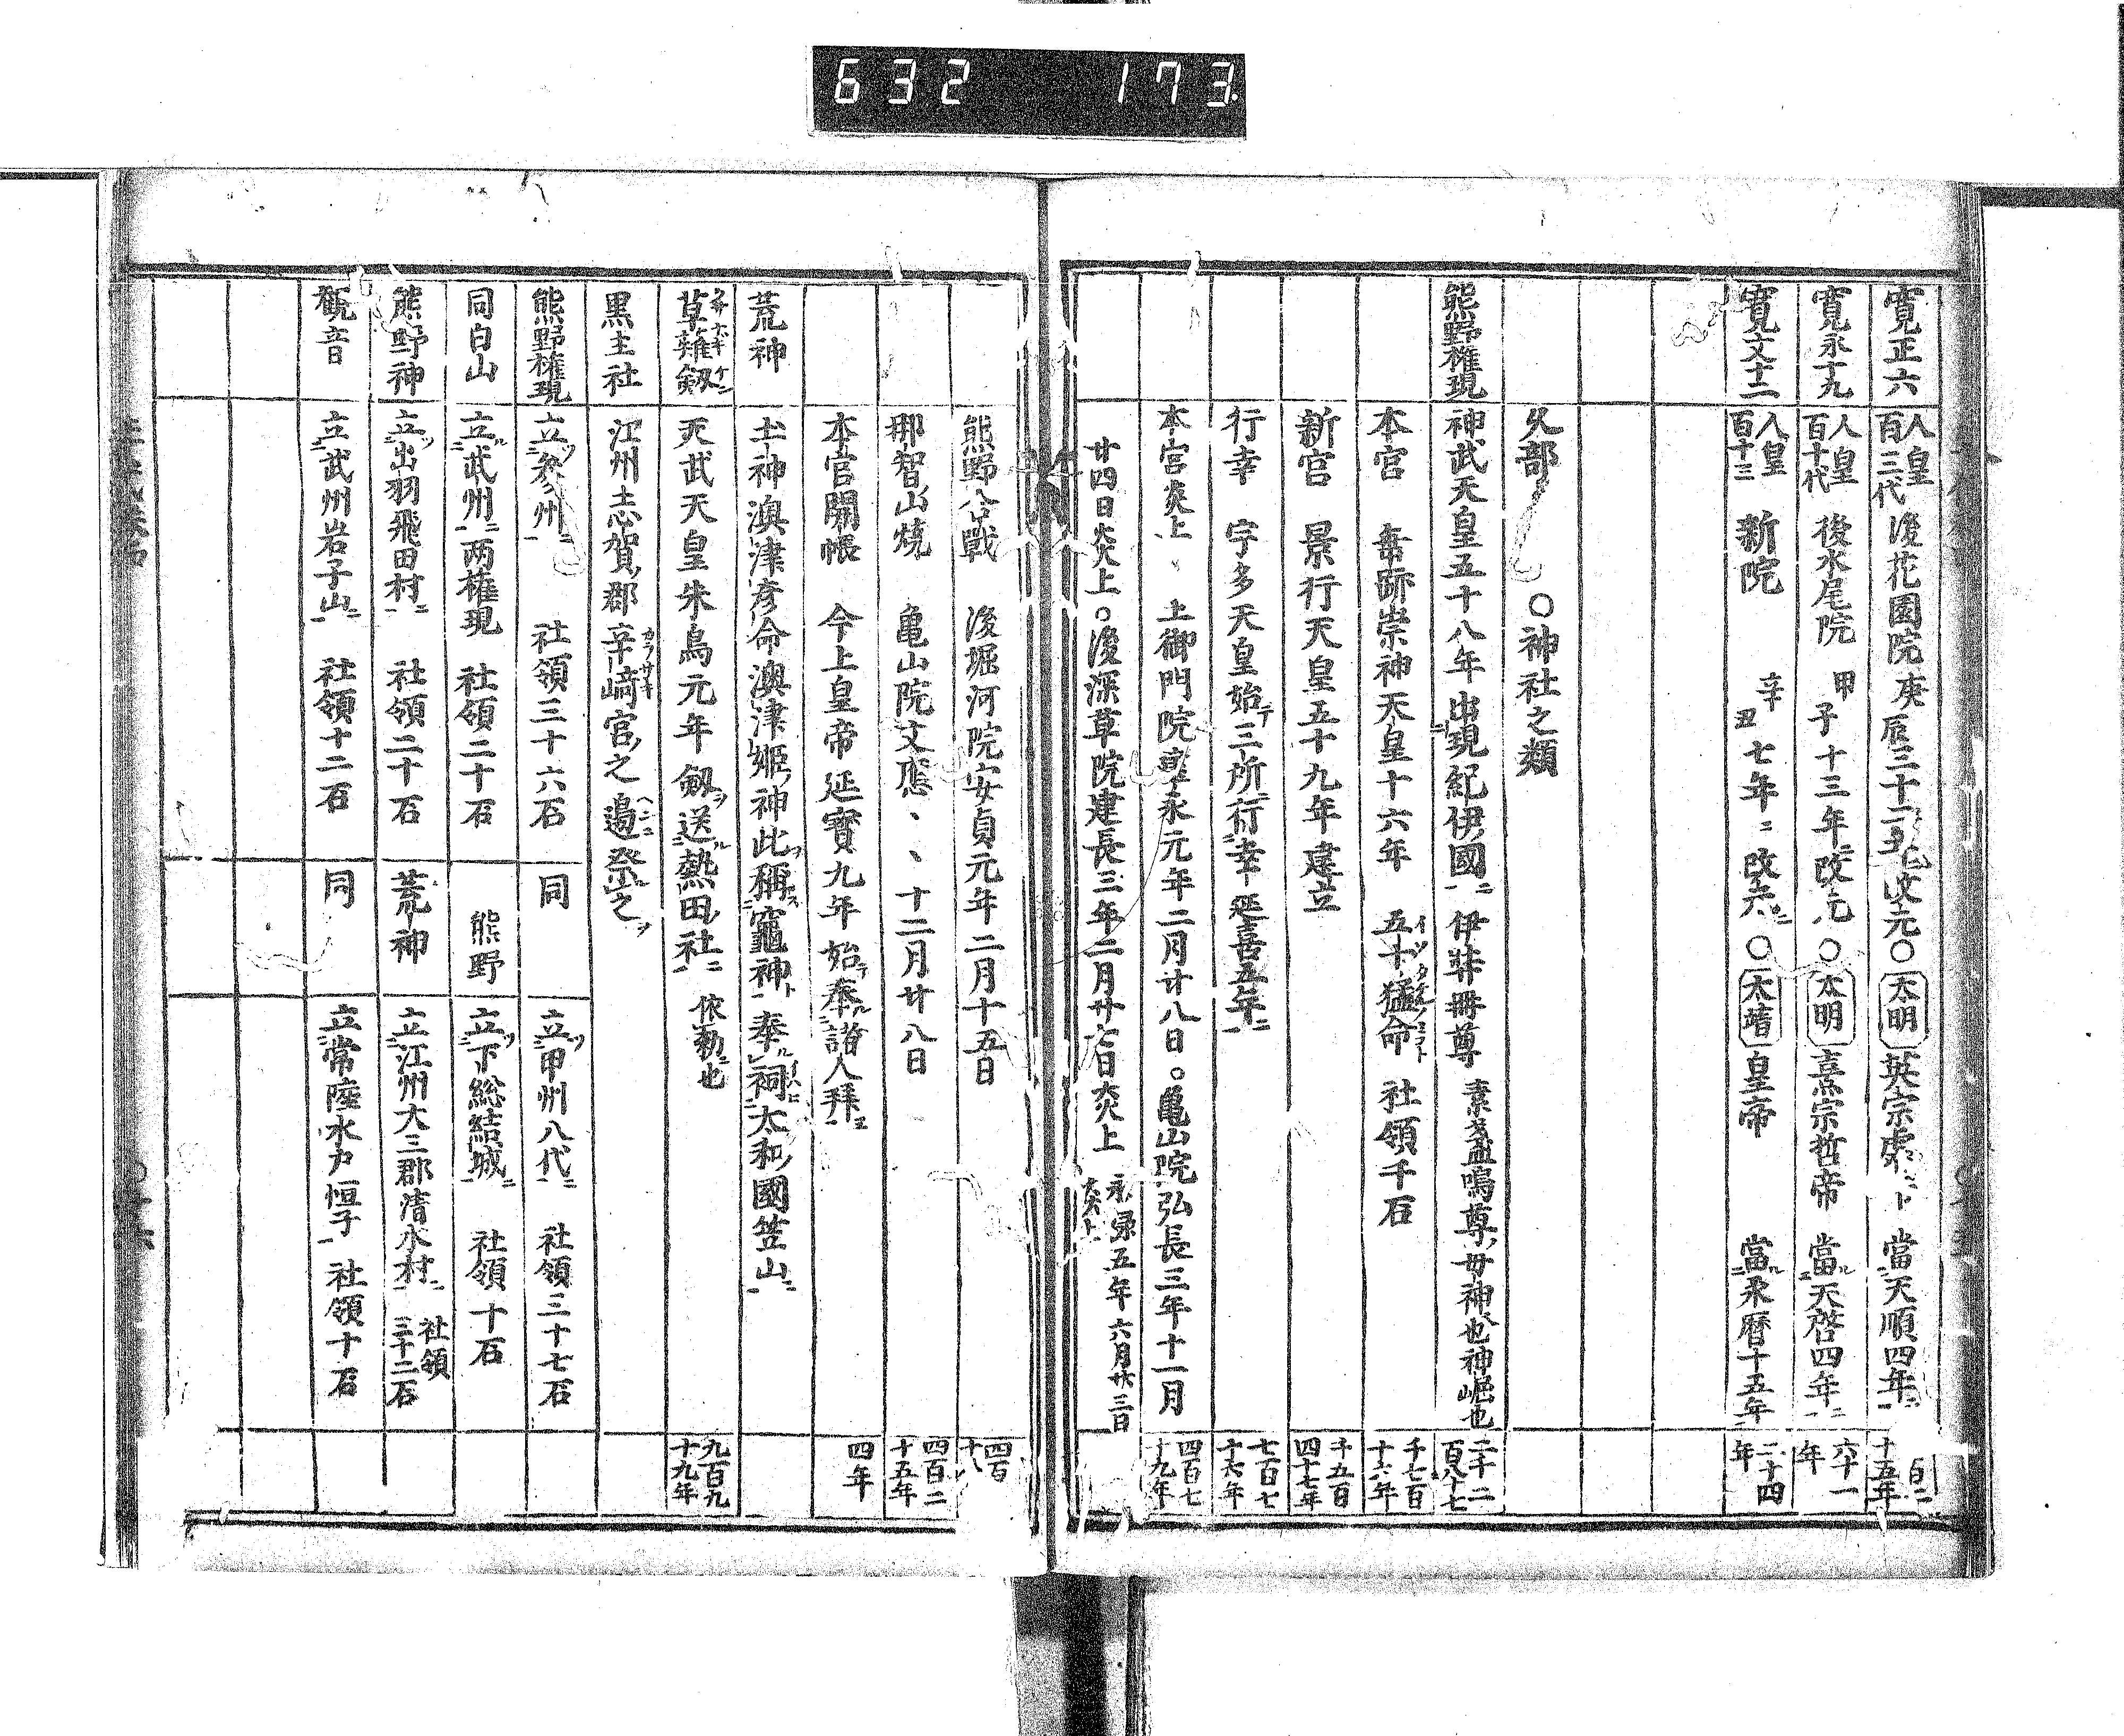 632 173
寛正六 人皇百三代 後花園院 庚辰三十二年改元○太明英宗處 當天順四年
寛永十九 人皇百十代 後水尾院 甲子十三年改元○太明熹宗哲帝 當天啓四年 六十一年
寛文十二 人皇百十三 新院 辛丑七年ニ改元○太靖皇帝 當永暦十五年 二十四年
久部 ○神社之類
熊野権現 神武天皇五十八年出現紀伊國 伊弉冊尊 素盞嗚尊母神也神崛也 二千二百八十七
本宮 垂跡崇神天皇十六年 五十猛命 社領千石 千七百十六年
新宮 景行天皇五十九年建立 千五百四十七年
行幸 宇多天皇始テ三所行幸延喜五年ニ 七百七十六年
本宮炎上 土御門院 永元年二月廿八日○亀山院弘長三年十一月 四百七十九年
廿四日炎上○後深草院建長三年二月廿七日炎上 永禄五年六月廿三日炎上
熊野合戰 後堀河院安貞元年二月十五日 四百
那智山焼 亀山院文應、、十二月廿八日 四百二十五年
本宮開帳 今上皇帝延寶九年始テ奉諸人拜 四年
荒神 土神澳津彦命澳津姫神此稱竈神ト奉祠太和國笠山ニ
草薙剱 天武天皇朱鳥元年剱送熱田社ニ 依勅也 九百九十九年
黒主社 江州志賀郡辛﨑宮之邊祭之
熊野権現 立參州ニ 社領三十六石 同 立甲州八代ニ 社領三十七石
同白山 立武州ニ両権現 社領二十石 熊野 立下総結城ニ 社領十石
熊野神 立出羽飛田村ニ 社領二十石 荒神 立江州大三郡清水村ニ 社領三十二石
観音 立武州岩子山ニ 社領十二石 同 立常陸水戸恒子 社領十石